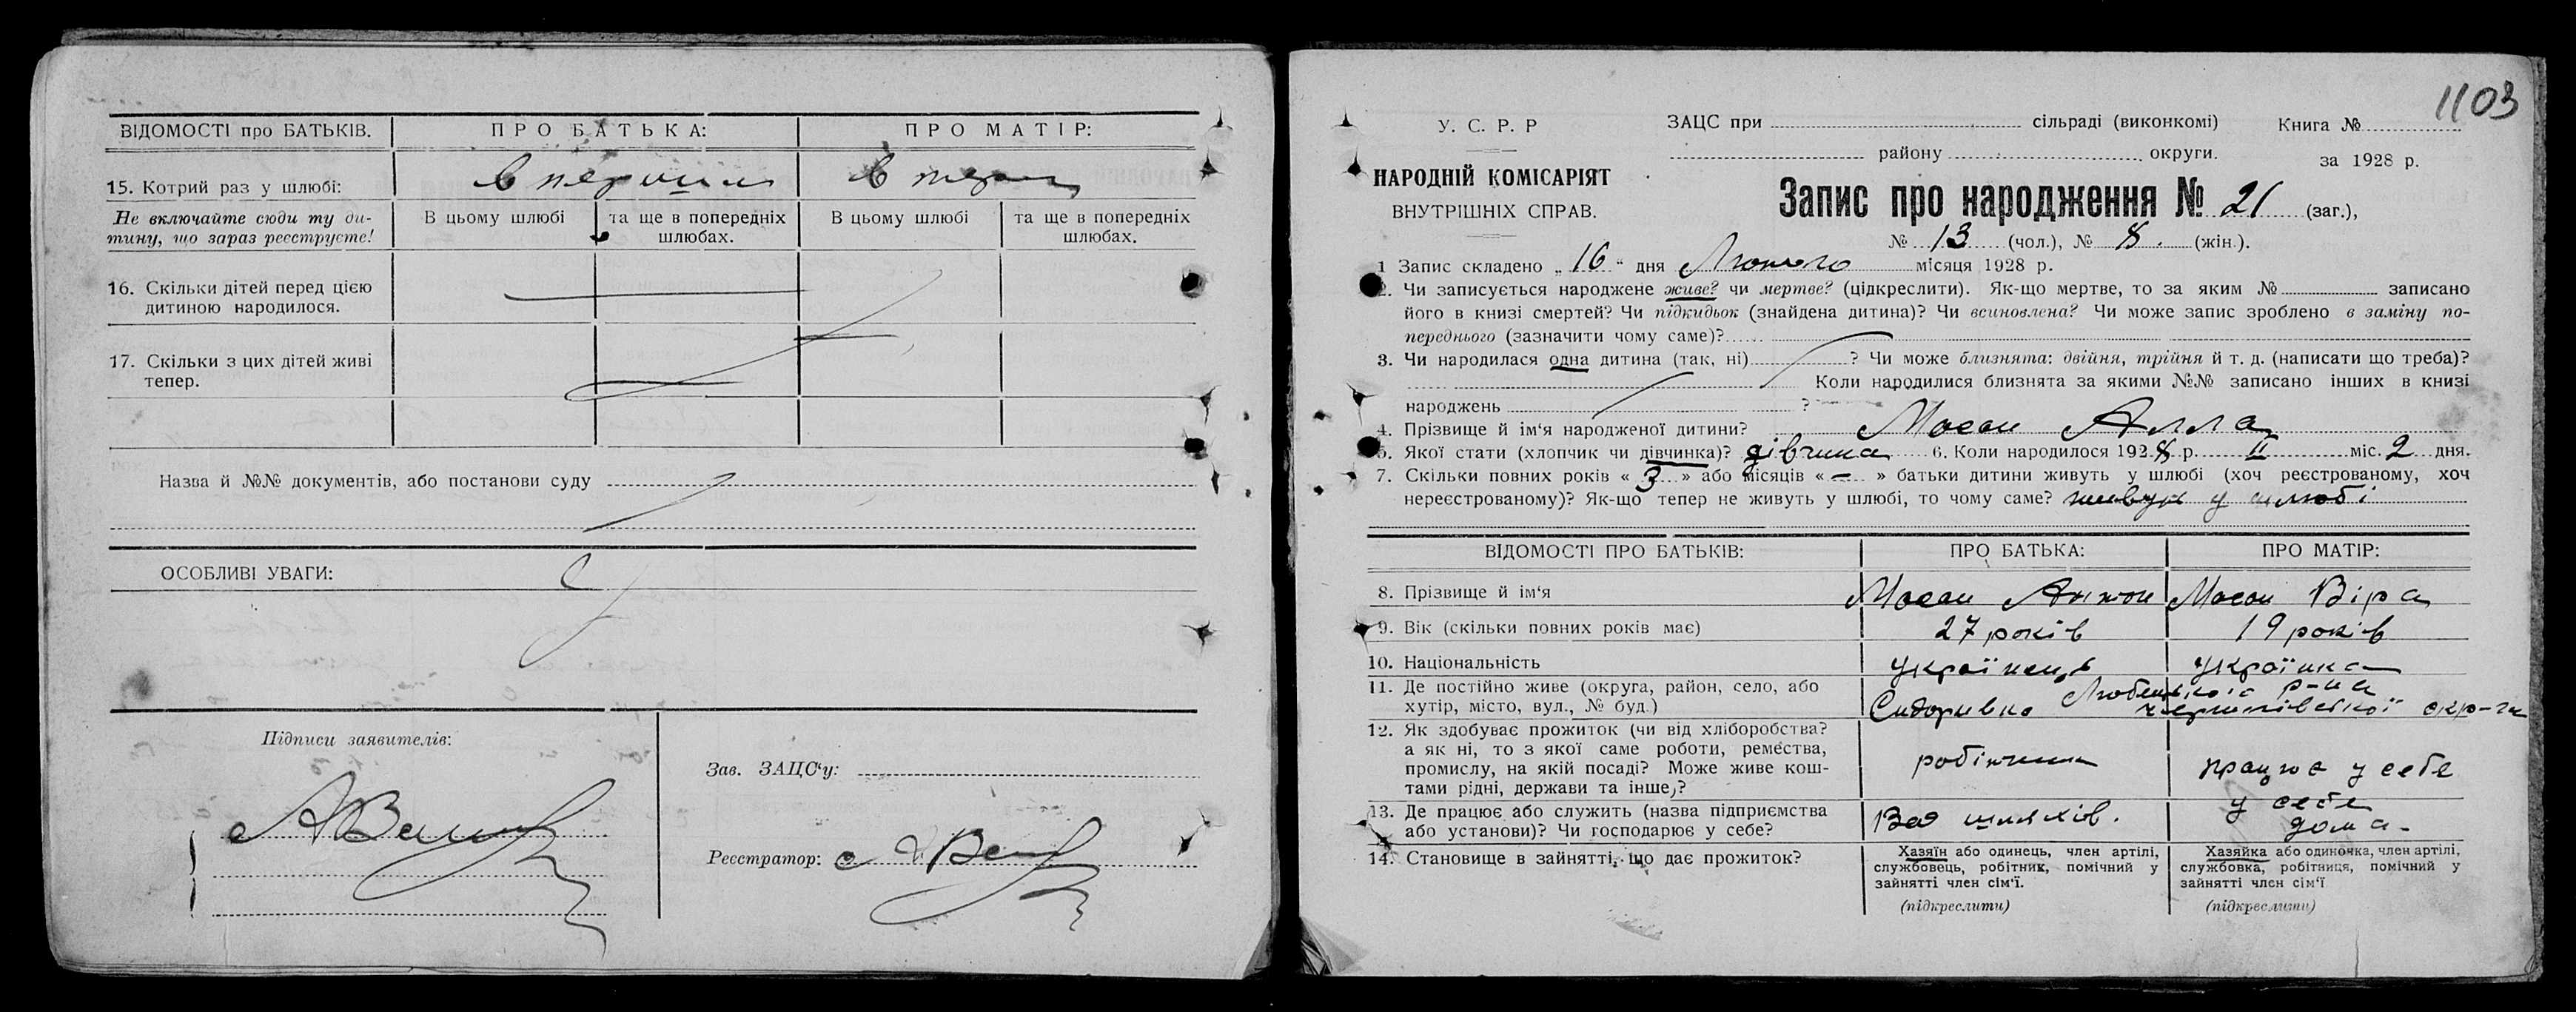 ВІДОМОСТІ про БАТЬКІВ. ПРО БАТЬКА: ПРО МАТІР:
15. Котрий раз у шлюбі: в перший в перш
Не включайте сюди ту ди-
тину, що зараз реєструєте!
В цьому шлюбі
та ще в попередніх
шлюбах.
В цьому шлюбі
та ще в попередніх
шлюбах.
16. Скільки дітей перед цією
дитиною народилося.
17. Скільки з цих дітей живі
тепер.
Назва й №№ документів, або постанови суду
ОСОБЛИВІ УВАГИ:
Підписи заявителів:
Зав. ЗАЦС‘у:
Реєстратор:
1103
У. С. Р. Р
НАРОДНІЙ КОМІСАРІЯТ
ВНУТРІШНІХ СПРАВ.
ЗАЦС при сільраді (виконкомі)
району округи.
Книга №
за 1928 р.
Запис про народження № 21 (заг.),
№ 13 (чол.), № 8. (жін.).
1 Запис складено „ 16 “ дня Лютого місяця 1928 р.
2. Чи записується народжене живе? чи мертве? (цідкреслити). Як-що мертве, то за яким № записано
його в книзі смертей? Чи підкидьок (знайдена дитина)? Чи всиновлена? Чи може запис зроблено в заміну по-
переднього (зазначити чому саме)?
3. Чи народилася одна дитина (так, ні) ? Чи може близнята: двійня, трійня й т. д. (написати що треба)?
Коли народилися близнята за якими №№ записано інших в книзі
народжень ?
4. Прізвище й ім‘я народженої дитини? Алла
5. Якої стати (хлопчик чи дівчинка)? дівчина 6. Коли народилося 1928 р. II міс. 2 дня.
7. Скільки повних років « 3 » або місяців « — » батьки дитини живуть у шлюбі (хоч реєстрованому, хоч
нереєстрованому)? Як-що тепер не живуть у шлюбі, то чому саме? живуть у шлюбі
ВІДОМОСТІ ПРО БАТЬКІВ: ПРО БАТЬКА: ПРО МАТІР:
8. Прізвище й ім‘я Антон Віра
9. Вік (скільки повних років має) 27 років 19 років
10. Національність українець українка
11. Де постійно живе (округа, район, село, або
хутір, місто, вул., № буд.)
Любецького р-на
Сидорівка Чернігівської окр-ги
12. Як здобуває прожиток (чи від хліборобства?
а як ні, то з якої саме роботи, ремества,
промислу, на якій посаді? Може живе кош-
тами рідні, держави та інше,?
робітник
працює у себе
13. Де працює або служить (назва підприємства
або установи)? Чи господарює у себе?
шляхів.
у себе
дома-
14. Становище в зайнятті, що дає прожиток?
Хазяїн або одинець, член артілі,
службовець, робітник, помічний у
зайнятті член сім‘ї.
(підкреслити)
Хазяйка або одиночка, член артілі,
службовка, робітниця, помічний у
зайнятті член сім‘ї
(підкреслити)